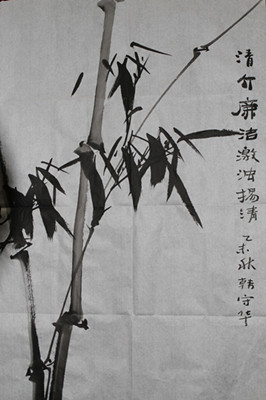 清介廉洁激浊揚清 乙未秋韩守华